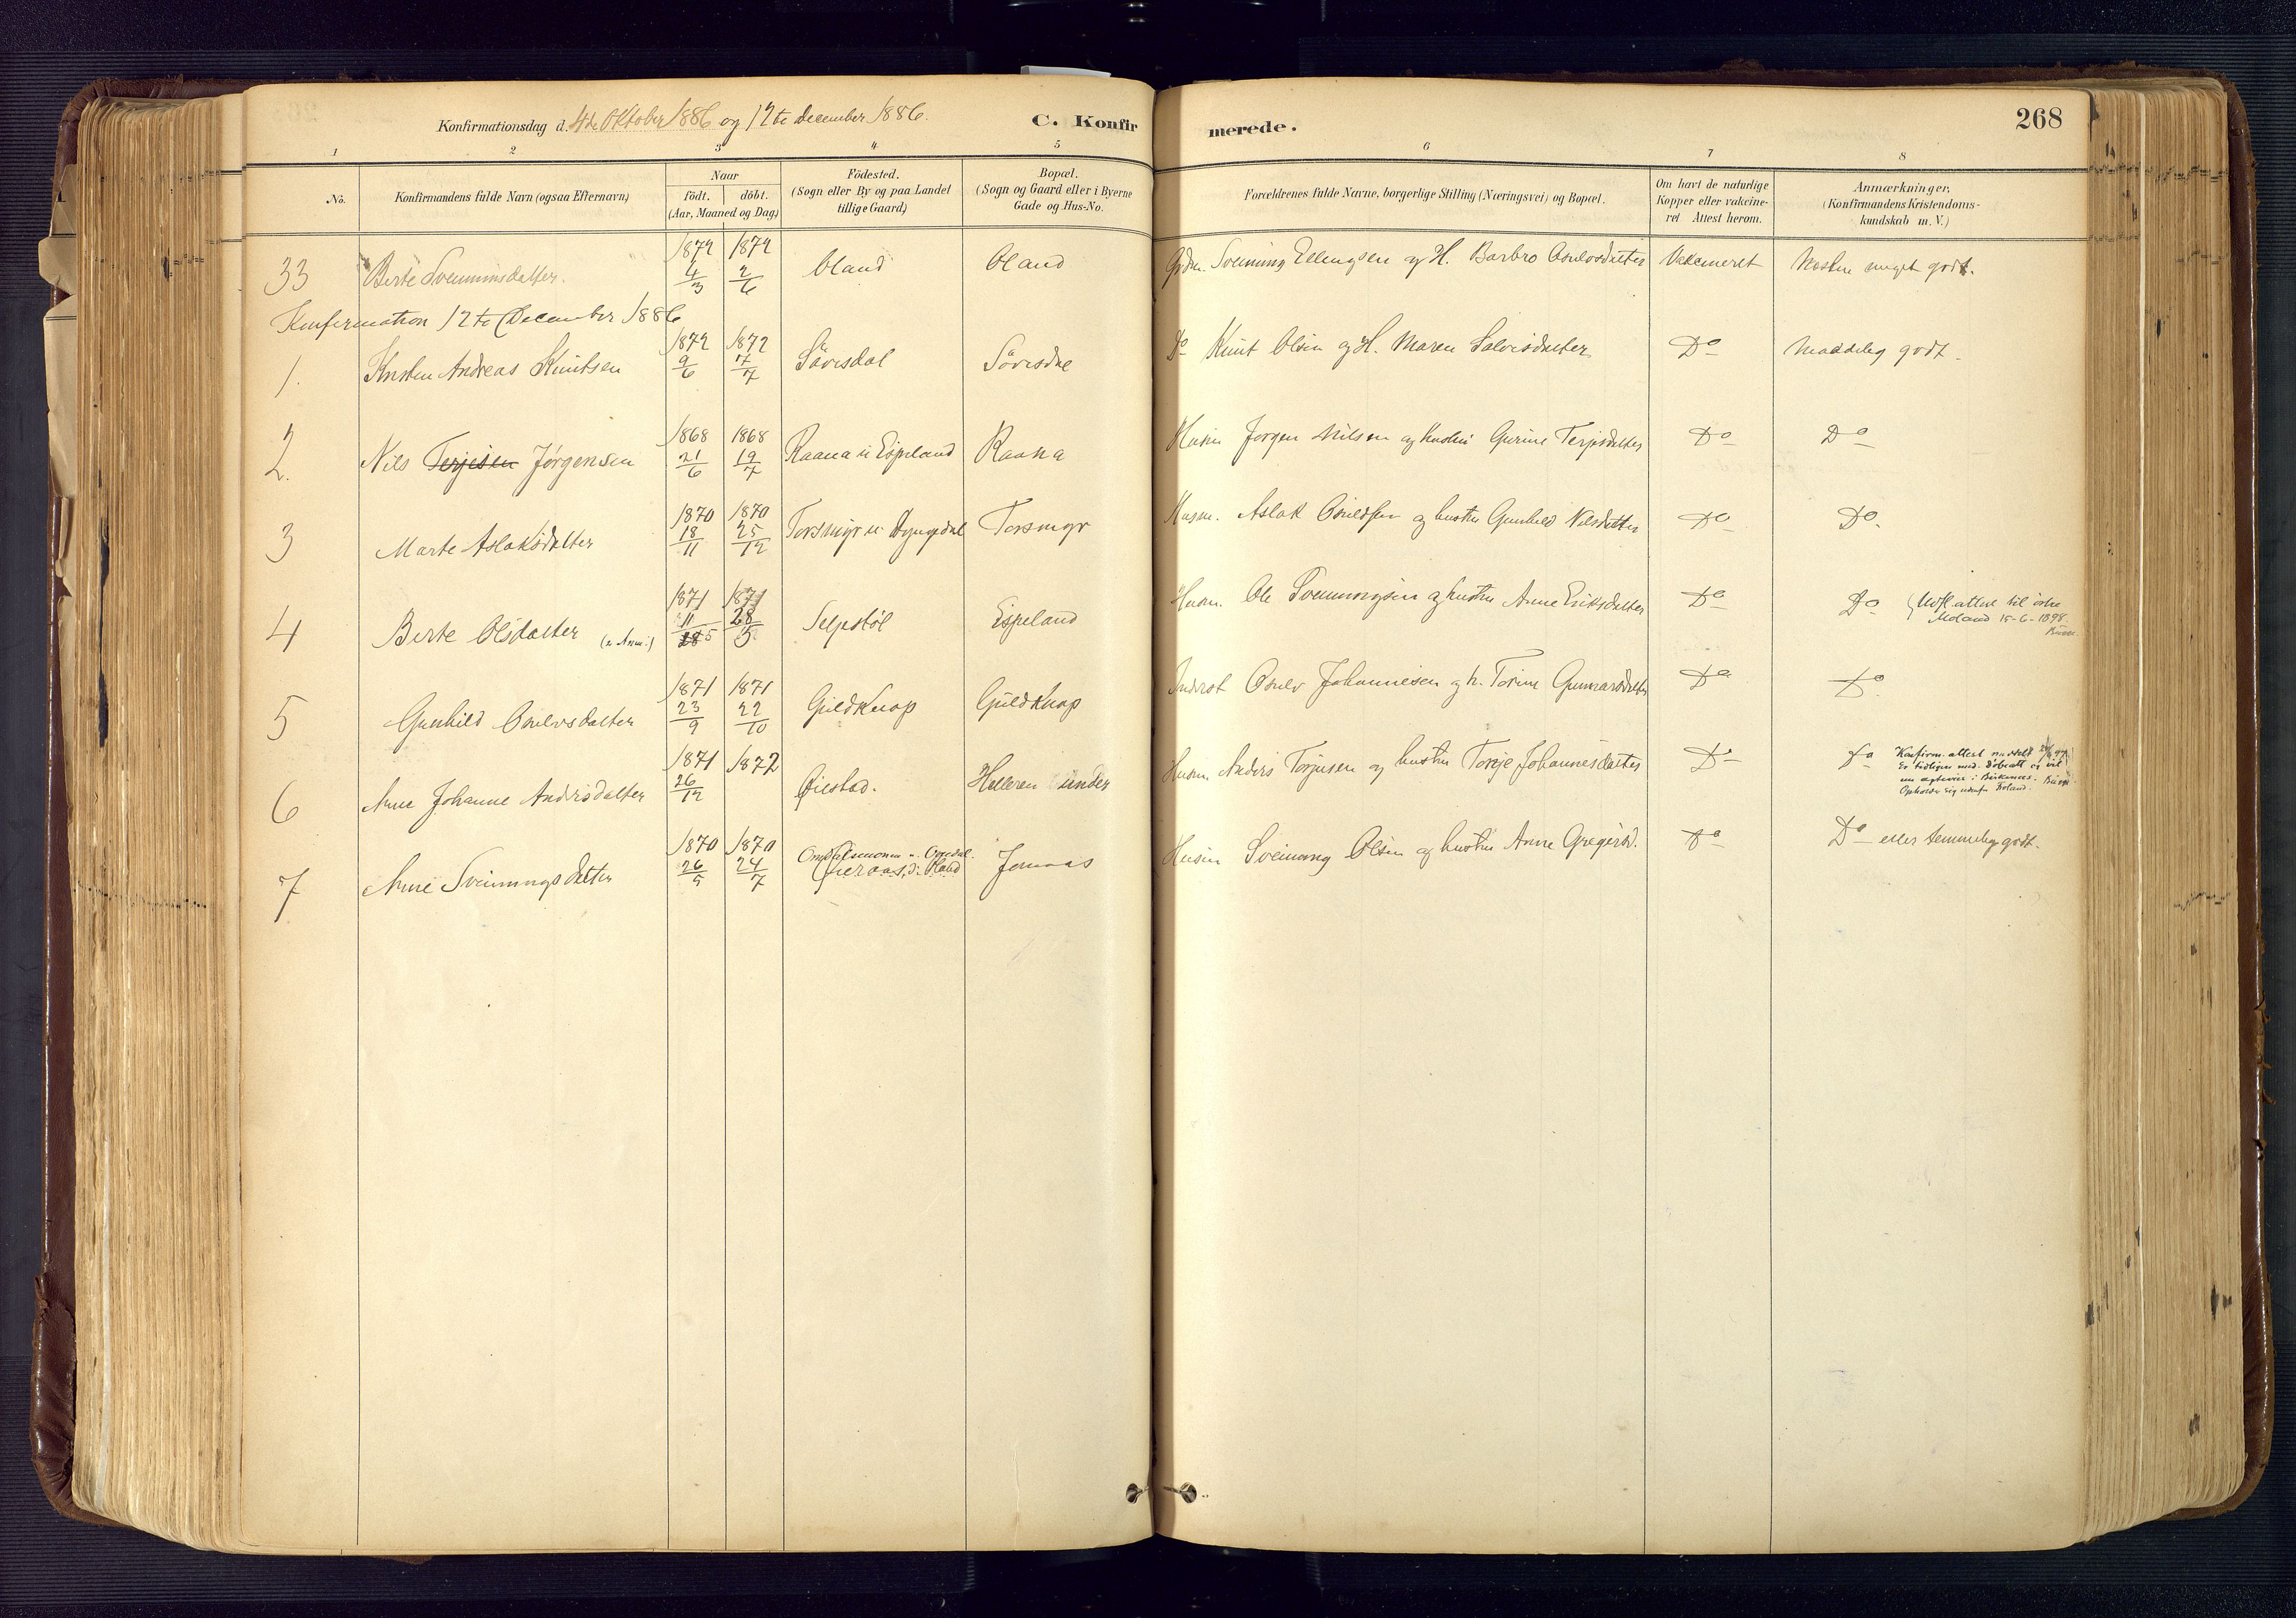 Konfirmationsdag d. 4de Oktober 1886 og 12te December 1886. C. Konfirmerede. 268
1 2 3 4 5 6 7 8
No. Konfirmandens fulde Navn (ogsaa Efternavn) Naar født. døbt. (Aar, Maaned og Dag) Fødested. (Sogn eller By og paa Landet tillige Gaard) Bopæl. (Sogn og Gaard eller i Byerne Gade og Hus-No. Forældrenes fulde Navne, borgerlige Stilling (Næringsvei) og Bopæl. Om havt de naturlige Kopper eller vakcineret Attest herom. Anmærkninger, (Konfirmandens Kristendomskundskab m. V.)
33 Berte Sveinunsdatter. 1872 4/3 1872 2/6 Oland Oland Grdm. Sveinung Ellingsen og H. Barbro Osulvsdatter Vakcineret Næsten meget godt.
Konfirmation 12te December 1886
1. Kristen Andreas Knutsen 1872 9/6 1872 7/7 Såvisdal Do Knut Olsen og H. Maren Salvisdatter Do Maadelig godt.
2. Nils Terjesen Jørgensen 1868 21/6 1868 19/7 Raana u Espeland Raana Husm Jørgen Nilsen og hustru Gurine Terjesdatter Do Do
3 Marte Aslaksdatter 1870 18/11 1870 25/12 Torsmyr Torsmyr Husm. Aslak og hustru Gunhild Nilsdatter Do Do.
4 Berte Olsdatter (se Anm:) 1871 11/5 1871 28/5 Selpstøl Espeland Husm. Ole Sveinungsen og hustru Anne Eriksdatter Do Do Udfl. attest til østre Moland 15-6-1898.
5 Gunhild Osulvsdatter 1871 23/9 1871 22/10 Guldknap Guldknap Inderst Osulv Johannesen og h. Torine Gunnarsdatter Do Do
6 Anne Johanne Andersdatter 1871 26/12 1872 Øiestad. Helleren under Husm Anders Terjusen og hustru Torje Johannesdatter Do Do Konfirm. attest meddelt
7 Anne Sveinungsdatter 1870 26/5 1870 24/7 Jomaas Husm Sveinung Olsen og hustru Anne Gregersd. Do Do eller temmelig godt.